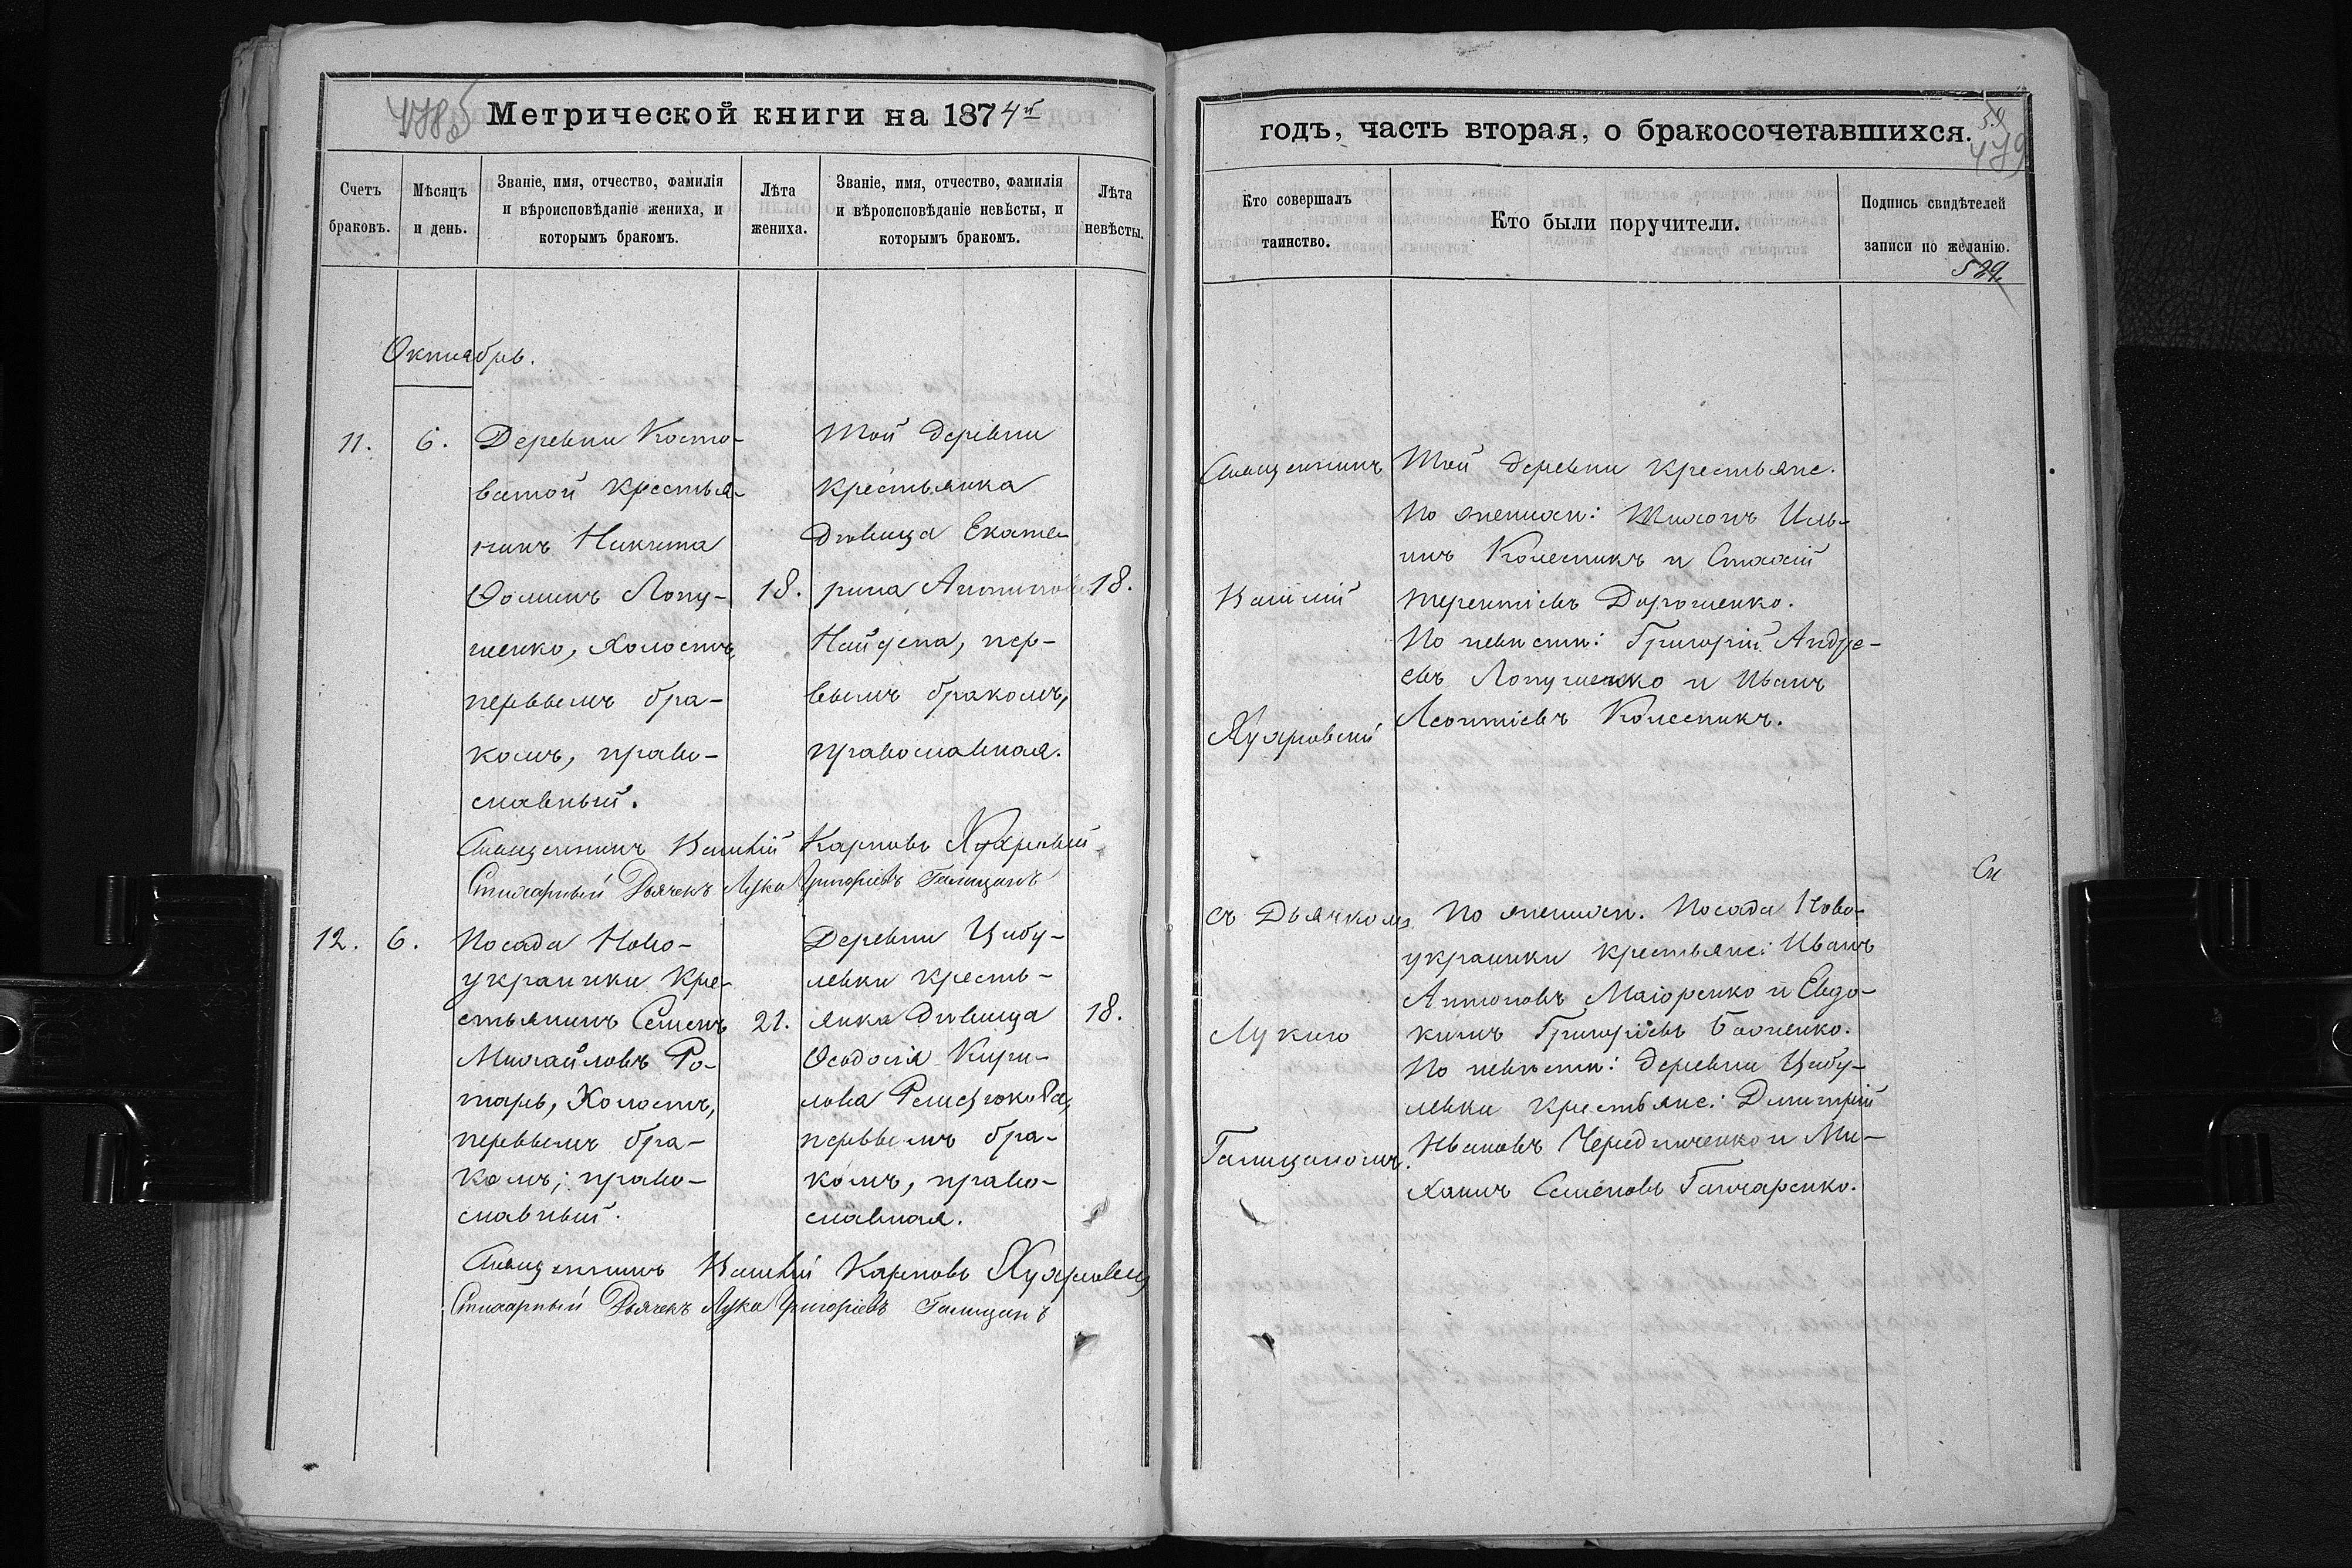 478об
Метрической книги на 1874й
Счетъ
браковъ.
Мѣсяцъ
и день.
Званіе, имя, отчество, фамилія
и вѣроисповѣданіе жениха, и
которымъ бракомъ.
Лѣта
жениха.
Званіе, имя, отчество, фамилія
и вѣроисповѣданіе невѣсты, и
которымъ бракомъ.
Лѣта
невѣсты.
Октябрь.
11.
6.
Деревни Косто-
ватой крестья-
нинъ Никита
Ѳоминъ Лопу-
шенко, холостъ,
первымъ бра-
комъ, право-
славный.
18.
Той деревни
крестьянка
дѣвица Екате-
рина Антипова
Найдена, пер-
вымъ бракомъ,
православная.
18.
Священникъ Василій Карповъ
Стихарный Дьячекъ Лука Григоріевъ Галицинъ
12.
6.
Посада Ново-
украинки кре-
стьянинъ Семенъ
Михайловъ Ро-
тарь, Холостъ,
первымъ бра-
комъ, право-
славный.
21.
Деревни Цибу-
левки кресть-
янка дѣвица
Ѳеодосія Кири-
лова
первымъ бра-
комъ, право-
славная.
18.
Священникъ Василій Карповъ
Стихарный Дьячекъ Лука Григоріевъ Галицинъ
годъ, часть вторая, о бракосочетавшихся.
59
479
Кто совершалъ
таинство.
Кто были поручители.
Подпись свидѣтелей
записи по желанію.
529
Священникъ
Василій
съ Дьячкомъ
Лукою
Галицинымъ.
Той деревни крестьяне.
По женихѣ: Тихонъ Иль-
инъ Колесникъ и Стахій
Терентіевъ Дорошенко.
По невѣсти: Григорій Андре-
евъ Лопушенко и Иванъ
Леонтіевъ Колесникъ.
По женихѣ. Посада Ново-
украинки крестьяне: Иванъ
Антоновъ Маіоренко и Евдо-
кимъ Григоріевъ
По невѣсти: деревни Цибу-
левки крестьяне: Димитрій
Ивановъ Чередниченко и Ми-
хаилъ Семеновъ Ганчаренко.